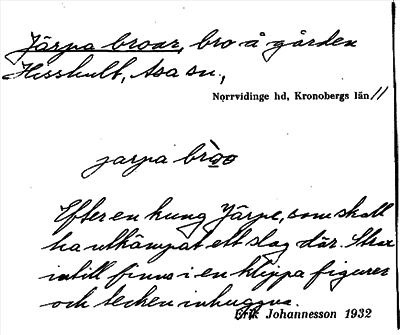 Järpa broar, bro å gården
Hisshult, Asa sn.,
Norrvidinge hd, Kronobergs län //
jarpa brὸo
Efter en kung Järpe, som skall
ha utkämpat ett slag där. Strax
intill finns i en klippa figurer
och tecken inhuggna.
Erik Johannesson 1932